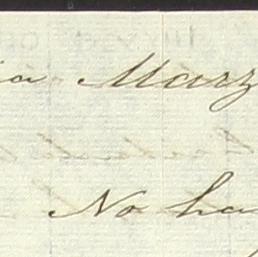 ia Marz
No ha